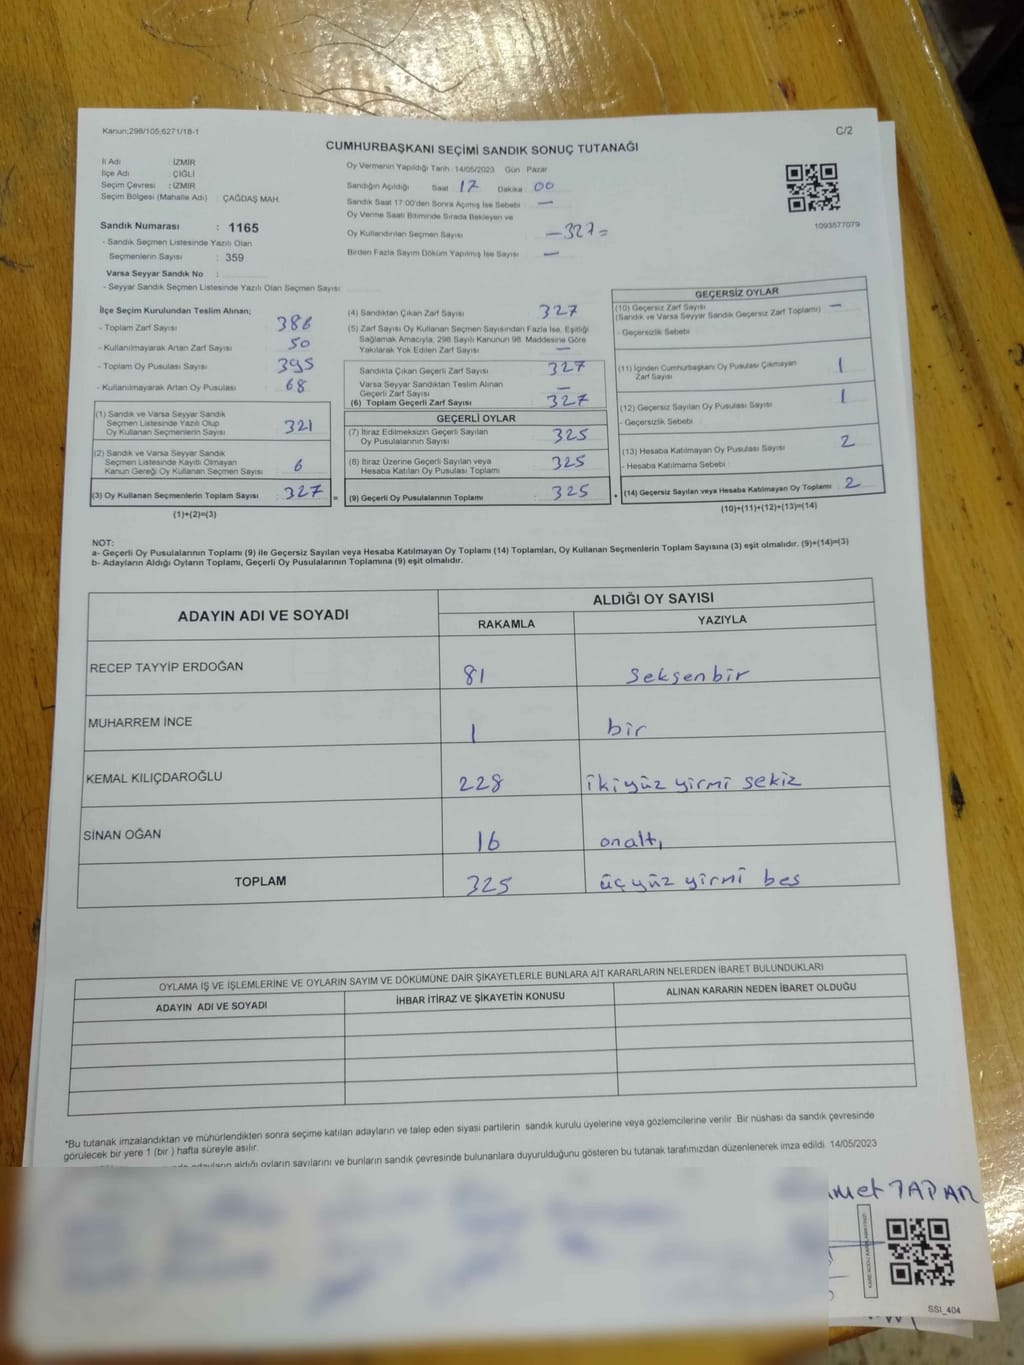 Kanun;298/105;6271/18-1
C/2
CUMHURBAŞKANI SEÇİMİ SANDIK SONUÇ TUTANAĞI
İl Adı : İZMİR
İlçe Adı : ÇİĞLİ
Seçim Çevresi : İZMİR
Seçim Bölgesi (Mahalle Adı) : ÇAĞDAŞ MAH.
Sandık Numarası : 1165
- Sandık Seçmen Listesinde Yazılı Olan
Seçmenlerin Sayısı : 359
Varsa Seyyar Sandık No :
- Seyyar Sandık Seçmen Listesinde Yazılı Olan Seçmen Sayısı
Oy Vermenin Yapıldığı Tarih 14/05/2023 Gün Pazar
Sandığın Açıldığı Saat 17 Dakika 00
Sandık Saat 17.00'den Sonra Açımış İse Sebebi —
Oy Verme Saati Bitiminde Sırada Bekleyen ve
Oy Kullandırılan Seçmen Sayısı —327=
Birden Fazla Sayım Döküm Yapılmış İse Sayısı —
1093577079
İlçe Seçim Kurulundan Teslim Alınan;
- Toplam Zarf Sayısı 386
- Kullanılmayarak Artan Zarf Sayısı 50
- Toplam Oy Pusulası Sayısı 395
- Kullanılmayarak Artan Oy Pusulası 68
(1) Sandık ve Varsa Seyyar Sandık
Seçmen Listesinde Yazılı Olup
Oy Kullanan Seçmenlerin Sayısı 321
(2) Sandık ve Varsa Seyyar Sandık
Seçmen Listesinde Kayıtlı Olmayan
Kanun Gereği Oy Kullanan Seçmen Sayısı 6
(3) Oy Kullanan Seçmenlerin Toplam Sayısı 327 =
(1)+(2)=(3)
(4) Sandıktan Çıkan Zarf Sayısı 327
(5) Zarf Sayısı Oy Kullanan Seçmen Sayısından Fazla İse, Eşitliği
Sağlamak Amacıyla; 298 Sayılı Kanunun 98. Maddesine Göre
Yakılarak Yok Edilen Zarf Sayısı —
Sandıkta Çıkan Geçerli Zarf Sayısı 327
Varsa Seyyar Sandıktan Teslim Alınan
Geçerli Zarf Sayısı —
(6) Toplam Geçerli Zarf Sayısı 327
GEÇERLİ OYLAR
(7) İtiraz Edilmeksizin Geçerli Sayılan
Oy Pusulalarının Sayısı 325
(8) İtiraz Üzerine Geçerli Sayılan veya
Hesaba Katılan Oy Pusulası Toplamı 325
(9) Geçerli Oy Pusulalarının Toplamı 325 +
GEÇERSİZ OYLAR
(10) Geçersiz Zarf Sayısı —
(Sandık ve Varsa Seyyar Sandık Geçersiz Zarf Toplamı)
- Geçersizlik Sebebi
(11) İçinden Cumhurbaşkanı Oy Pusulası Çıkmayan
Zarf Sayısı 1
(12) Geçersiz Sayılan Oy Pusulası Sayısı 1
- Geçersizlik Sebebi
(13) Hesaba Katılmayan Oy Pusulası Sayısı 2
- Hesaba Katılmama Sebebi
(14) Geçersiz Sayılan veya Hesaba Katılmayan Oy Toplamı 2
(10)+(11)+(12)+(13)=(14)
NOT:
a- Geçerli Oy Pusulalarının Toplamı (9) ile Geçersiz Sayılan veya Hesaba Katılmayan Oy Toplamı (14) Toplamları, Oy Kullanan Seçmenlerin Toplam Sayısına (3) eşit olmalıdır. (9)+(14)=(3)
b- Adayların Aldığı Oyların Toplamı, Geçerli Oy Pusulalarının Toplamına (9) eşit olmalıdır.
ADAYIN ADI VE SOYADI
ALDIĞI OY SAYISI
RAKAMLA YAZIYLA
RECEP TAYYİP ERDOĞAN 81 Seksenbir
MUHARREM İNCE 1 bir
KEMAL KILIÇDAROĞLU 228 ikiyüz yirmi sekiz
SİNAN OĞAN 16 onaltı
TOPLAM 325 üçyüz yirmi beş
OYLAMA İŞ VE İŞLEMLERİNE VE OYLARIN SAYIM VE DÖKÜMÜNE DAİR ŞİKAYETLERLE BUNLARA AİT KARARLARIN NELERDEN İBARET BULUNDUKLARI
ADAYIN ADI VE SOYADI İHBAR İTİRAZ VE ŞİKAYETİN KONUSU ALINAN KARARIN NEDEN İBARET OLDUĞU
*Bu tutanak imzalandıktan ve mühürlendikten sonra seçime katılan adayların ve talep eden siyasi partilerin sandık kurulu üyelerine veya gözlemcilerine verilir. Bir nüshası da sandık çevresinde
görülecek bir yere 1 (bir ) hafta süreyle asılır.
aldığı oyların sayılarını ve bunların sandık çevresinde bulunanlara duyurulduğunu gösteren bu tutanak tarafımızdan düzenlenerek imza edildi. 14/05/2023
TAPAR
SSI_404